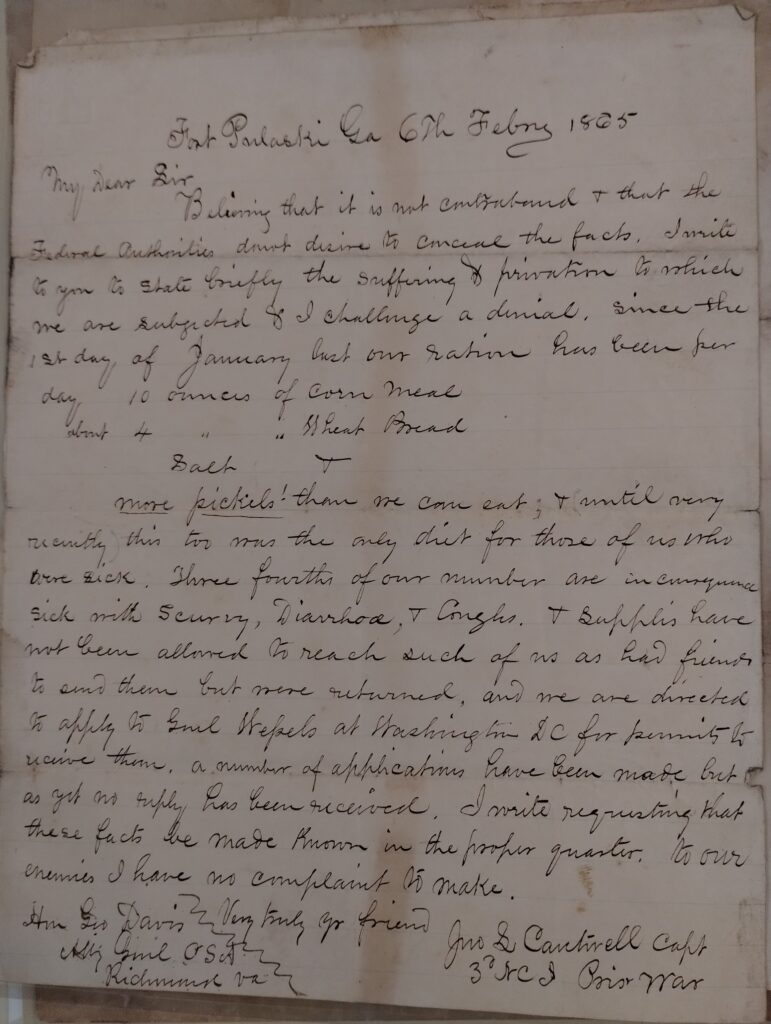 Fort Pulaski Ga 6Th Febry 1865
My Dear Sir
Believing that it is not contraband & that the
Federal Authorities dont desire to conceal the facts. I write
to you to state briefly the suffering & privation to which
we are subjected & I challenge a denial. since the
1st day of January last our ration has been per
day 10 ounces of corn meal
about 4 " " Wheat Bread
Salt &
more pickels! than we can eat; & until very
recently this too was the only diet for those of us who
were sick. Three fourths of our number are in consequence
sick with Scurvy, Diarrhoea, & Coughs. & supplis have
not been allowed to reach such of us as had friends
to send them but were returned, and we are directed
to apply to Genl Wessels at Washington DC for permits to
receive them. a number of applications have been made but
as yet no reply has been received. I write requesting that
these facts be made known in the proper quarter. to our
enemies I have no complaint to make.
Hon Geo Davis Very truly yr friend
Atty Genl CSA Jno L Cantwell Capt
Richmond Va 3d NC I Prisr War